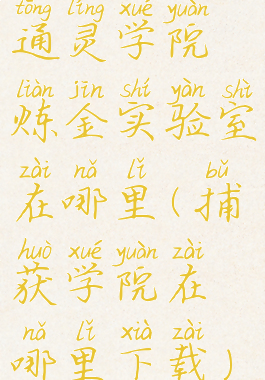 tōng líng xué yuàn
通灵学院
liàn jīn shí yàn shì
炼金实验室
zài nǎ lǐ bǔ
在哪里(捕
huò xué yuàn zài
获学院在
nǎ lǐ xià zài
哪里下载)